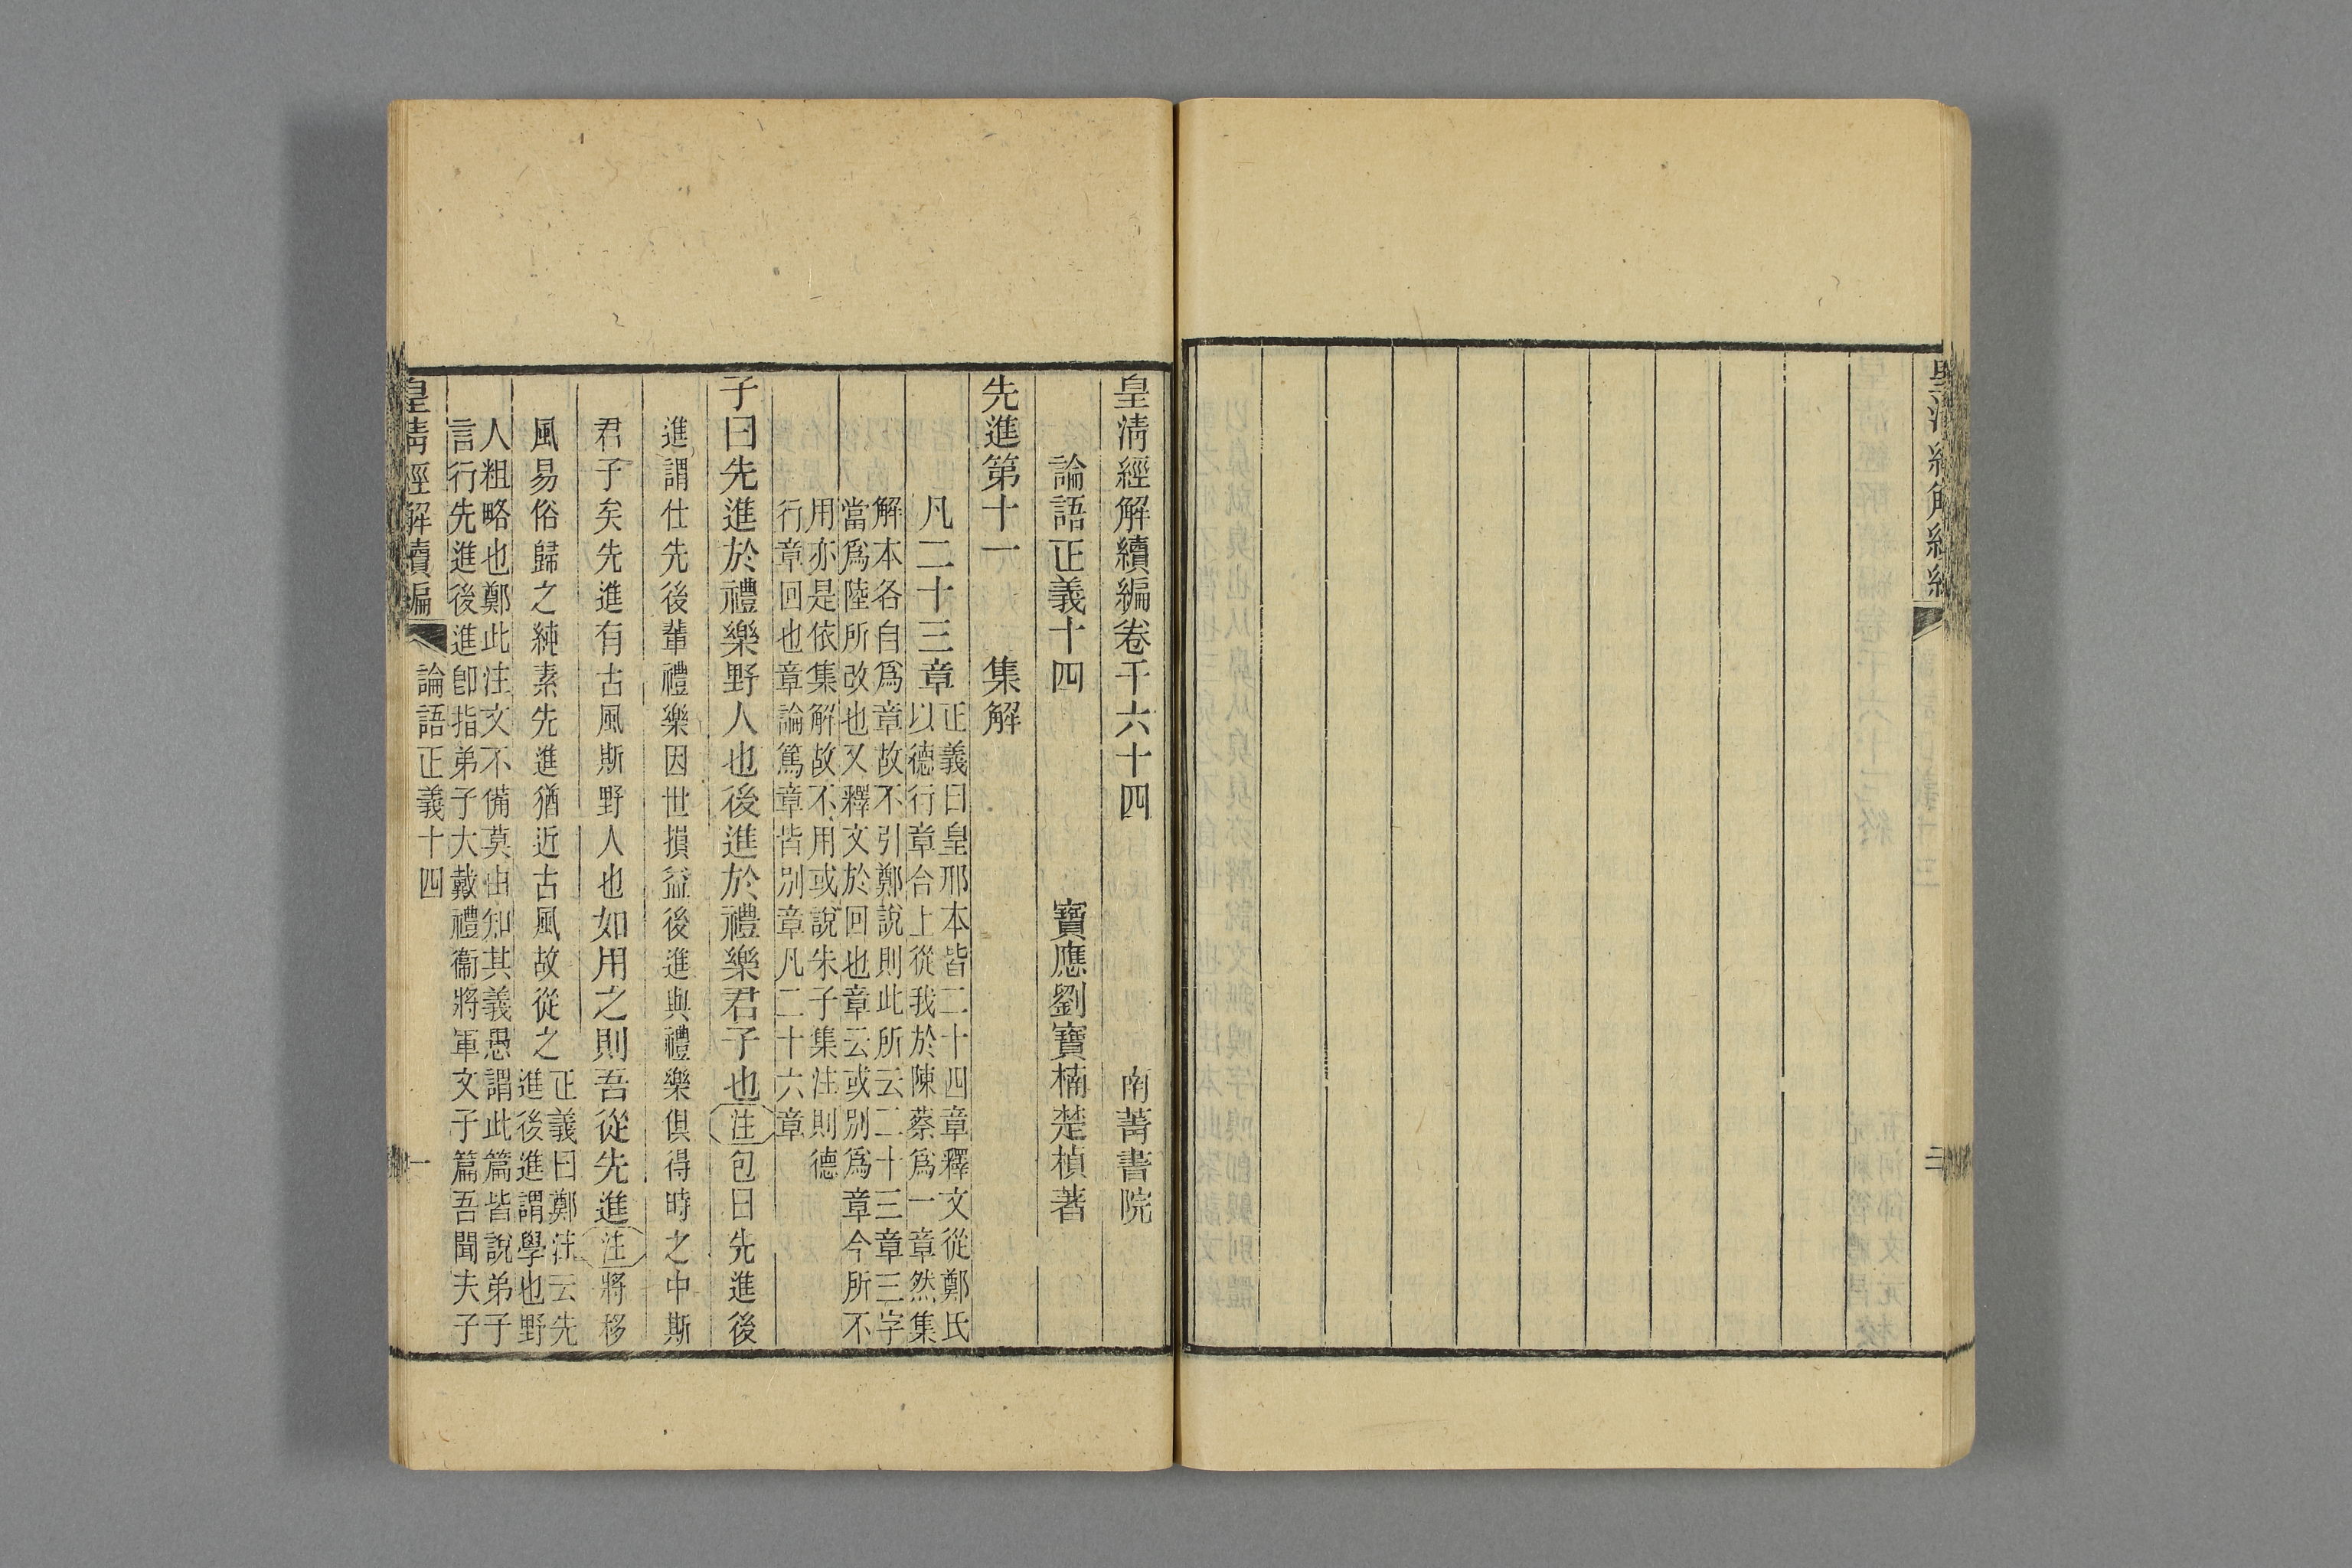 皇清經解續編卷千六十四　南菁書院
論語正義十四　寶應劉寶楠楚楨著
先進第十一　集解
凡二十三章　正義曰皇邢本皆二十四章釋文從鄭氏
以德行章合上從我於陳蔡爲一章然集
解本各自爲章故不引鄭說則此所云二十三章三字
當爲陸所改也又釋文於回也章云或別爲章今所不
用亦是依集解故不用或說朱子集注則德
行章回也章論篤章皆別章凡二十六章
子曰先進於禮樂野人也後進於禮樂君子也注包曰先進後
進謂仕先後輩禮樂因世損益後進與禮樂俱得時之中斯
君子矣先進有古風斯野人也如用之則吾從先進注將移
風易俗歸之純素先進猶近古風故從之　正義曰鄭注云先
進後進謂學也野
人粗略也鄭此注文不備莫由知其義愚謂此篇皆說弟子
言行先進後進卽指弟子大戴禮衞將軍文子篇吾聞夫子
皇清經解續編　論語正義十四　一